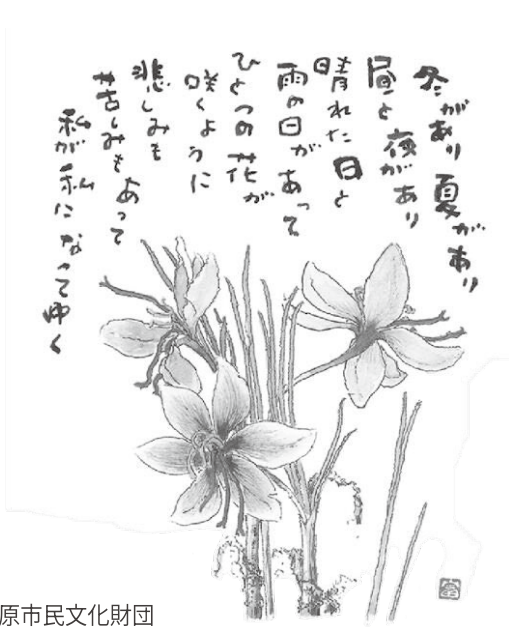 冬があり夏があり
昼と夜があり
晴れた日と
雨の日があって
ひとつの花が
咲くように
悲しみも
苦しみもあって
私が私になってゆく
原市民文化財団